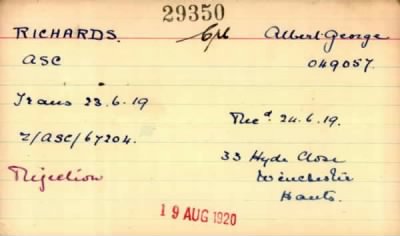 29350
RICHARDS. Cpl Albert George
ASC 049057.
Trans 23.6.19
Rec.d 24.6.19.
Z/ASC/67204.
33 Hyde Close
Winchester
Hants.
Rejection
19 AUG 1920